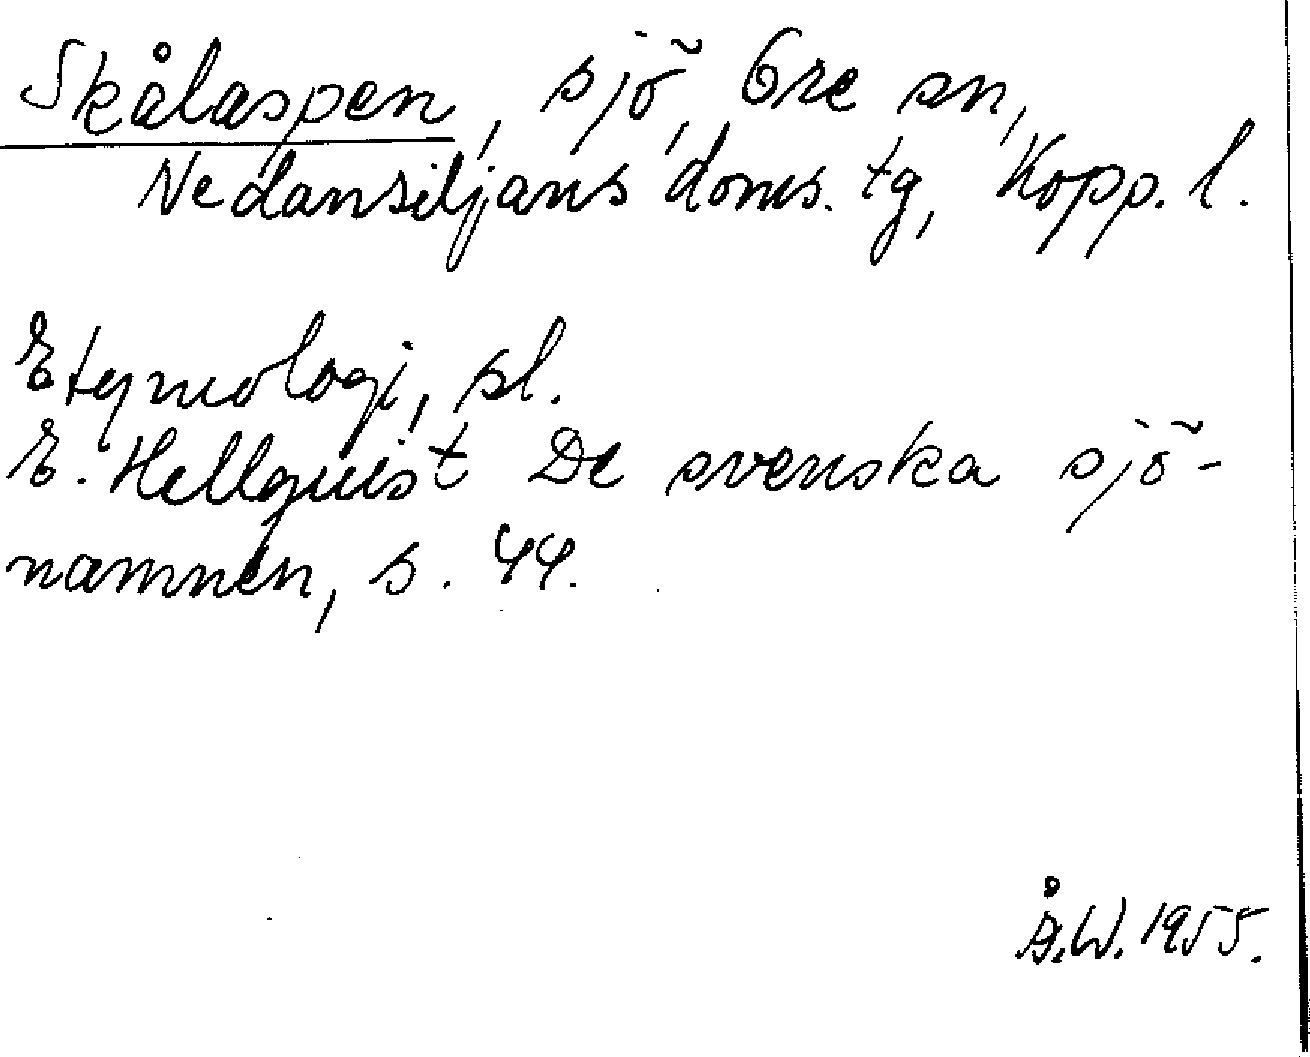 Skålaspen, sjö, Ore sn,
Nedansiljans doms. tg, Kopp. l.
Etymologi, sl.
E. Hellquist De svenska sjö-
namnen, s. 44.
Å.W. 1955.